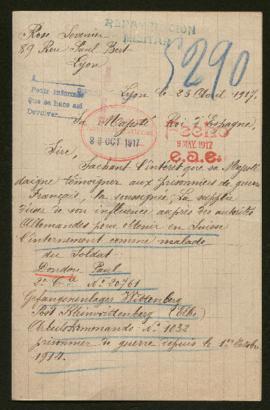 Rose
89 Rue Paul Bert
Lyon
REPARTICION
MILITAR
5290
Lyon le 23 Avril 1917.
A
Petit informe
que se hace así
Devolver
Sa Majesté Roi d'Espagne
28 OCT 1917
FECHO
9 MAY. 1917
e.a.e.
Sire,
Sachant l'intérêt que sa Majesté
daigne témoigner aux prisonniers de guerre
Français, la soussignée, la supplie
d'user de son influence auprès des autorités
Allemandes pour obtenir en Suisse
l'internement comme malade
du Soldat
Paul
2e Cie No 20761
Gefangenenlager Wittenberg
Post Kleinwittenberg (Elbe)
Arbeitskommando No 1032
prisonnier de guerre depuis le 1er Octobre
1914.